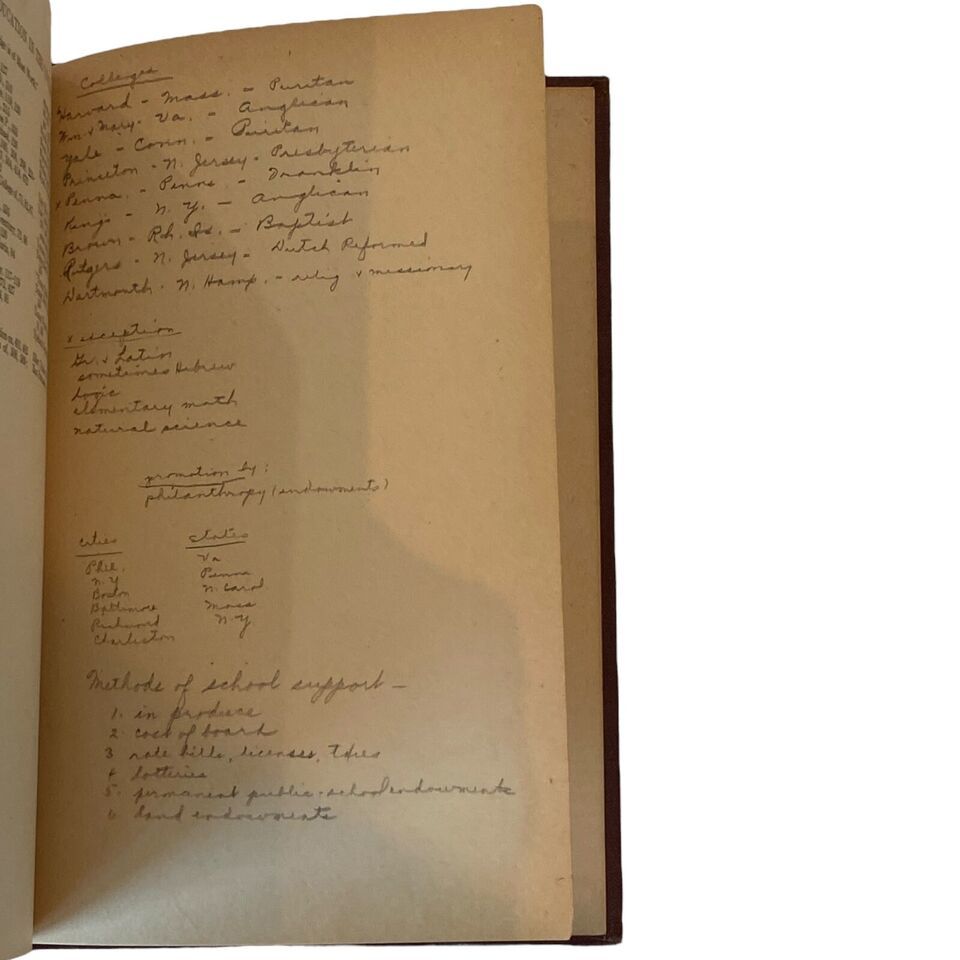 UCATION IN THE
Colleges
Harvard - Mass. - Puritan
Wm & Mary - Va. - Anglican
Yale - Conn. - Puritan
Princeton - N. Jersey - Presbyterian
x Penna. - Penna. - Franklin
Kings - N. Y. - Anglican
Brown - Rh. Is. - Baptist
Rutgers - N. Jersey - Dutch Reformed
Dartmouth - N. Hamp. - relig & missionary
x exception
Gr. & Latin
sometimes Hebrew
Logic
elementary math
natural science
promotion by:
philanthropy (endowments)
cities states
Phil. Va
N. Y Penna
Boston N. Carol
Baltimore Mass
Richmond N. Y
Charleston
Methods of school support -
1. in produce
2. cost of board
3 rate bills, licenses, taxes
4 lotteries
5. permanent public-school endowments
6 land endowments